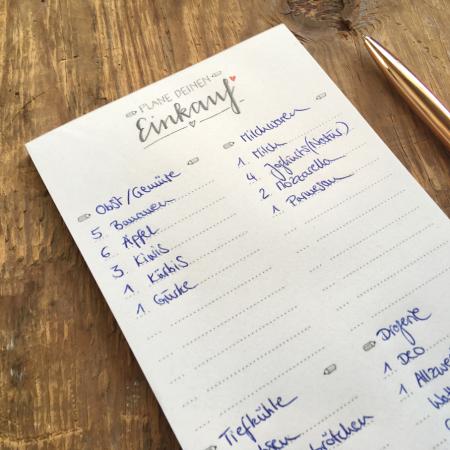 PLANE DEINEN
Einkauf
Obst/Gemüse
5 Bananen
6 Äpfel
3 Kiwis
1 Kürbis
1 Gurke
Milchwaren
1 Milch
4 Joghurts (Natur)
2 Mozzarella
1 Parmesan
Tiefkühle
Drogerie
1 DEO
1